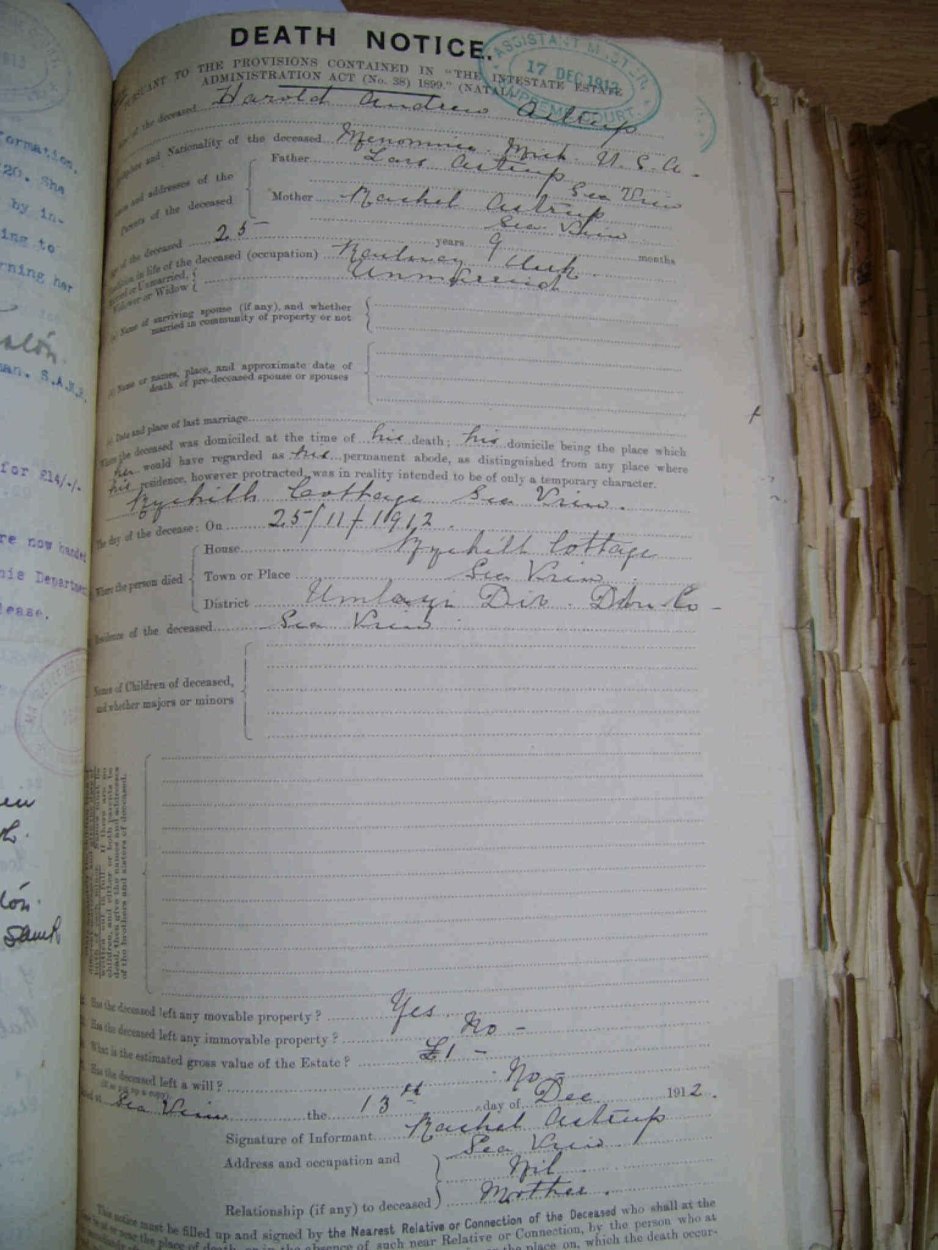 DEATH NOTICE.
PURSUANT TO THE PROVISIONS CONTAINED IN "THE INTESTATE ESTATE
ADMINISTRATION ACT (No. 38) 1899." (NATAL)
ASSISTANT MASTER
17 DEC 1912
SUPREME COURT
of the deceased Harold Andrew Astrup
Birthplace and Nationality of the deceased Menominee. Mich. U.S.A.
Names and addresses of the Parents of the deceased
Father Lars Astrup
Sea View
Mother Rachel Astrup
Sea View
Age of the deceased 25 years 9 months
Condition in life of the deceased (occupation) Railway Clerk
Married or Unmarried, Widower or Widow Unmarried
(a) Name of surviving spouse (if any), and whether
married in community of property or not
(b) Name or names, place, and approximate date of
death of pre-deceased spouse or spouses
(c) Date and place of last marriage
Where the deceased was domiciled at the time of his death; his domicile being the place which
he would have regarded as his permanent abode, as distinguished from any place where
his residence, however protracted, was in reality intended to be of only a temporary character.
Ryehill Cottage Sea View.
The day of the decease: On 25/11/1912.
Where the person died
House Ryehill Cottage
Town or Place Sea View
District Umlazi Div. Dbn Co
Residence of the deceased Sea View
Names of Children of deceased,
and whether majors or minors
children, and either or both parents be
dead, then give the names and addresses
of the brothers and sisters of deceased.
Has the deceased left any movable property? Yes.
Has the deceased left any immovable property? No -
What is the estimated gross value of the Estate? £1 -
Has the deceased left a will? No -
Dated at Sea View the 13th day of Dec 1912.
Signature of Informant Rachel Astrup
Address and occupation and Sea View
Nil
Relationship (if any) to deceased Mother.
This notice must be filled up and signed by the Nearest Relative or Connection of the Deceased who shall at the
the place of death, or in the absence of such near Relative or Connection, by the person who at
the place on, which the death occur-